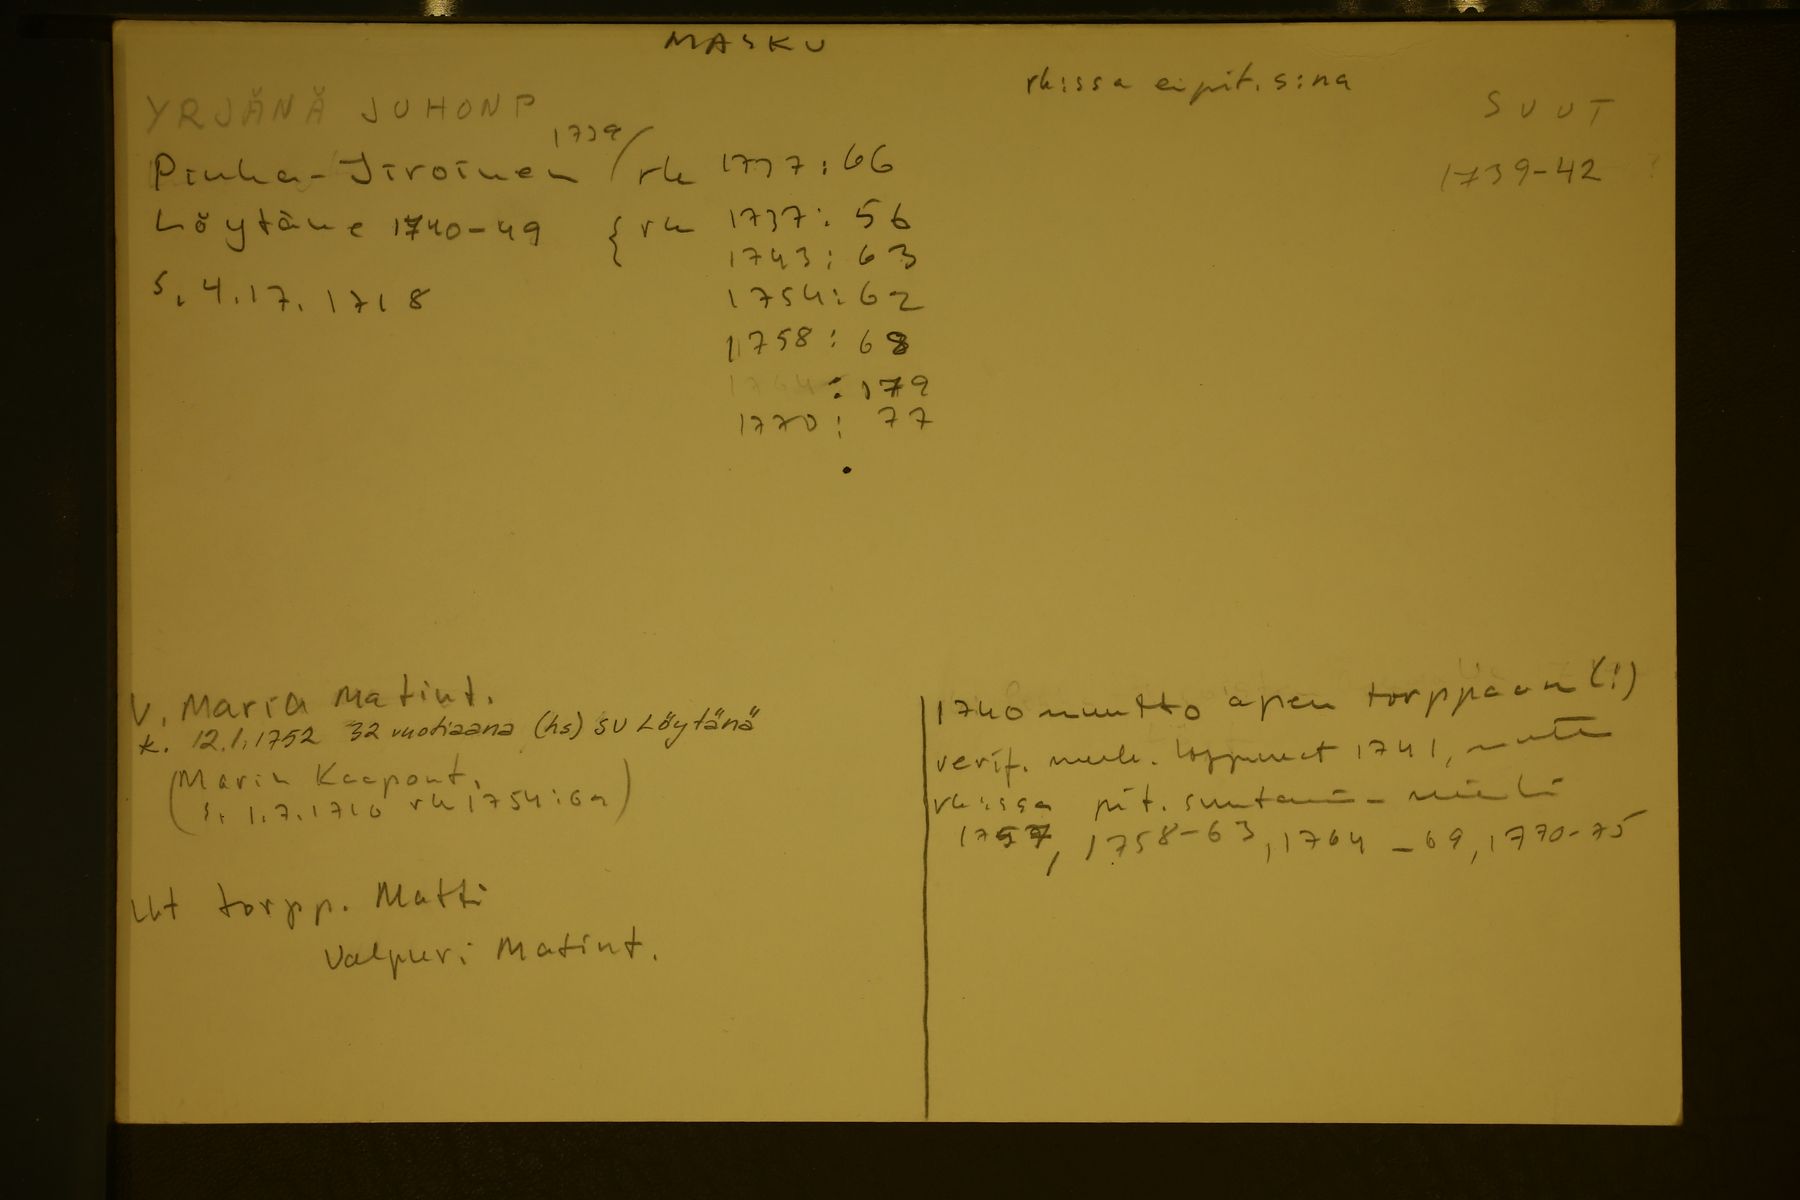 MASKU
rk:ssa ei pit. s:na
YRJÄNÄ JUHONP
SUUT
1739
Pinka-Jiroinen / rk 1737:66
1739-42
Löytäne 1740-49 { rk 1737:56
1743:63
s. 4.17.1718
1754:62
1758:68
1764:179
1770:77
V. Maria Matint.
k. 12.1.1752 32 vuotiaana (hs) SU Löytänä
(Maria Kaapont.
s. 1.7.1710 rk 1754:62)
Lht torpp. Matti
Valpuri Matint.
1740 muutto apen torppaan (!)
verif. muk. loppunut 1741, mutta
rk:ssa pit. suutarin-
1757, 1758-63, 1764-69, 1770-75